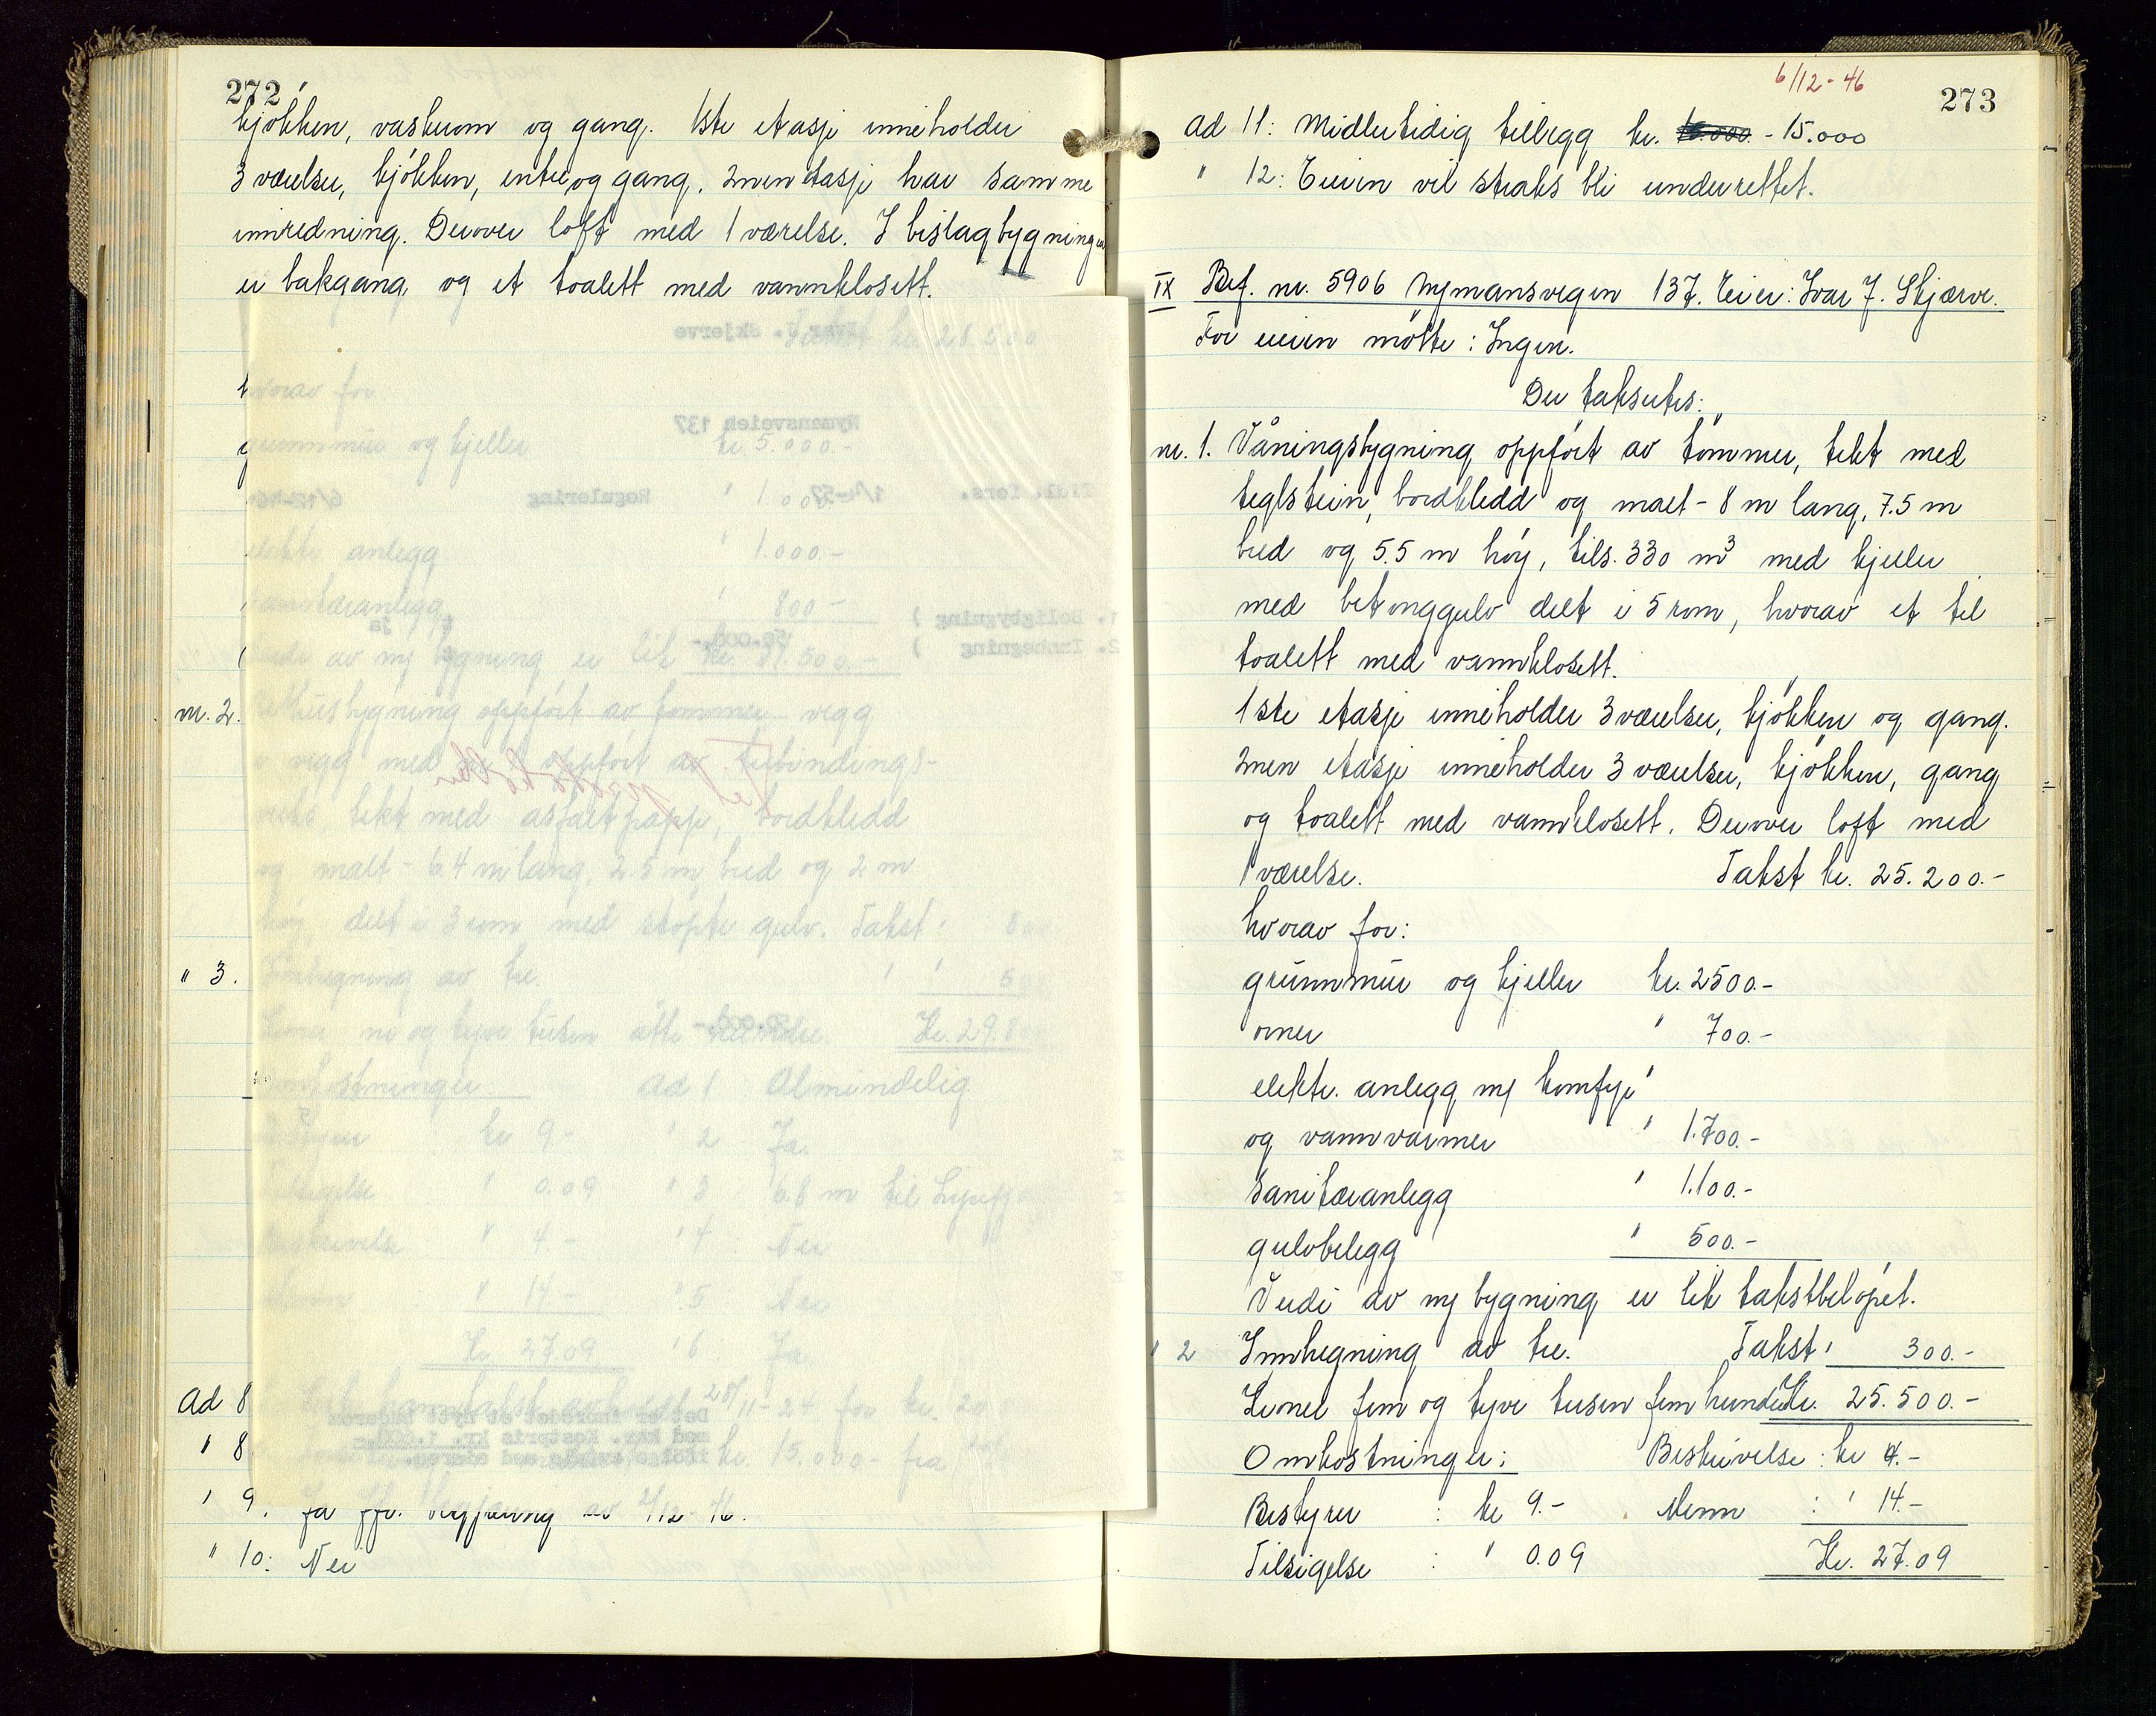 272
kjøkken, vaskerom og gang. 1ste etasje inneholder
3 værelser, kjøkken, entre og gang. 2nen etasje har samme
innredning. Derover loft med 1 værelse. I bislagbygningen
er bakgang og et toalett med vannklosett.
Takst kr. 28.500
hvorav for
grunnmur og kjeller kr. 5.000.-
" 1.000.-
elektr. anlegg " 1.000.-
sanitæranlegg " 800-
av ny bygning er lik kr.
nr. 2. Uthusbygning oppført av tømmer vegg
i vegg med oppført av utbindings-
verk, tekt med asfaltpapp, bordkledd
og malt - 6.4 m lang, 2.5 m bred og 2 m
høy, delt i 3 rom med støpte gulv. Takst:
" 3. Innhegning av tre.
Kroner ni og tyve tusen åtte hundre. Kr. 29.8
Omkostninger. Ad 1 Almindelig
Bestyrer kr 9.- " 2 Ja.
Tilsigelse " 0.09 " 3 6.8 m til
Beskrivelse " 4.- " 4 Nei
Menn " 14.- " 5 Nei
Kr 27.09 " 6 Ja
Ad 8 28/11-24 for kr. 20
" 8. kr. 15.000.- fra
" 9. Ja jfr. begjæring av 2/12-46.
" 10: Nei
Ivar J. Skjerve
Nymansveien 137
Regulering
1. Boligbygning )
2. Innhegning )
50.000.-
50.000.-
Det er innredet et nytt baderom
med kar. Kostpris kr. 1.000,-
ifølge avtale med eieren.
6/12-46
273
Ad 11: Midlertidig tillegg kr. 15.000 - 15.000
" 12: Eieren vil straks bli underrettet.
IX Bef. nr. 5906 Nymansvegen 137. Eier: Ivar J. Skjærve.
For eieren møtte: Ingen.
Der takseres:
nr. 1. Våningsbygning oppført av tømmer, tekt med
teglstein, bordkledd og malt - 8 m lang, 7.5 m
bred og 5.5 m høy, tils. 330 m³ med kjeller
med betonggulv delt i 5 rom, hvorav et til
toalett med vannklosett.
1ste etasje inneholder 3 værelser, kjøkken og gang.
2nen etasje inneholder 3 værelser, kjøkken, gang
og toalett med vannklosett. Derover loft med
1 værelse. Takst kr. 25.200.-
hvorav for:
grunnmur og kjeller kr. 2500.-
ovner " 700.-
elektr. anlegg m/ komfyr
og vannvarmer " 1.700.-
sanitæranlegg " 1.100.-
gulvbelegg " 500.-
Verdi av ny bygning er lik takstbeløpet.
" 2 Innhegning av tre. Takst: 300.-
Kroner fem og tyve tusen fem hundre Kr. 25.500.-
Omkostninger: Beskrivelse: kr 4.-
Bestyrer : kr 9.- Menn : " 14.-
Tilsigelse : " 0.09 Kr. 27.09